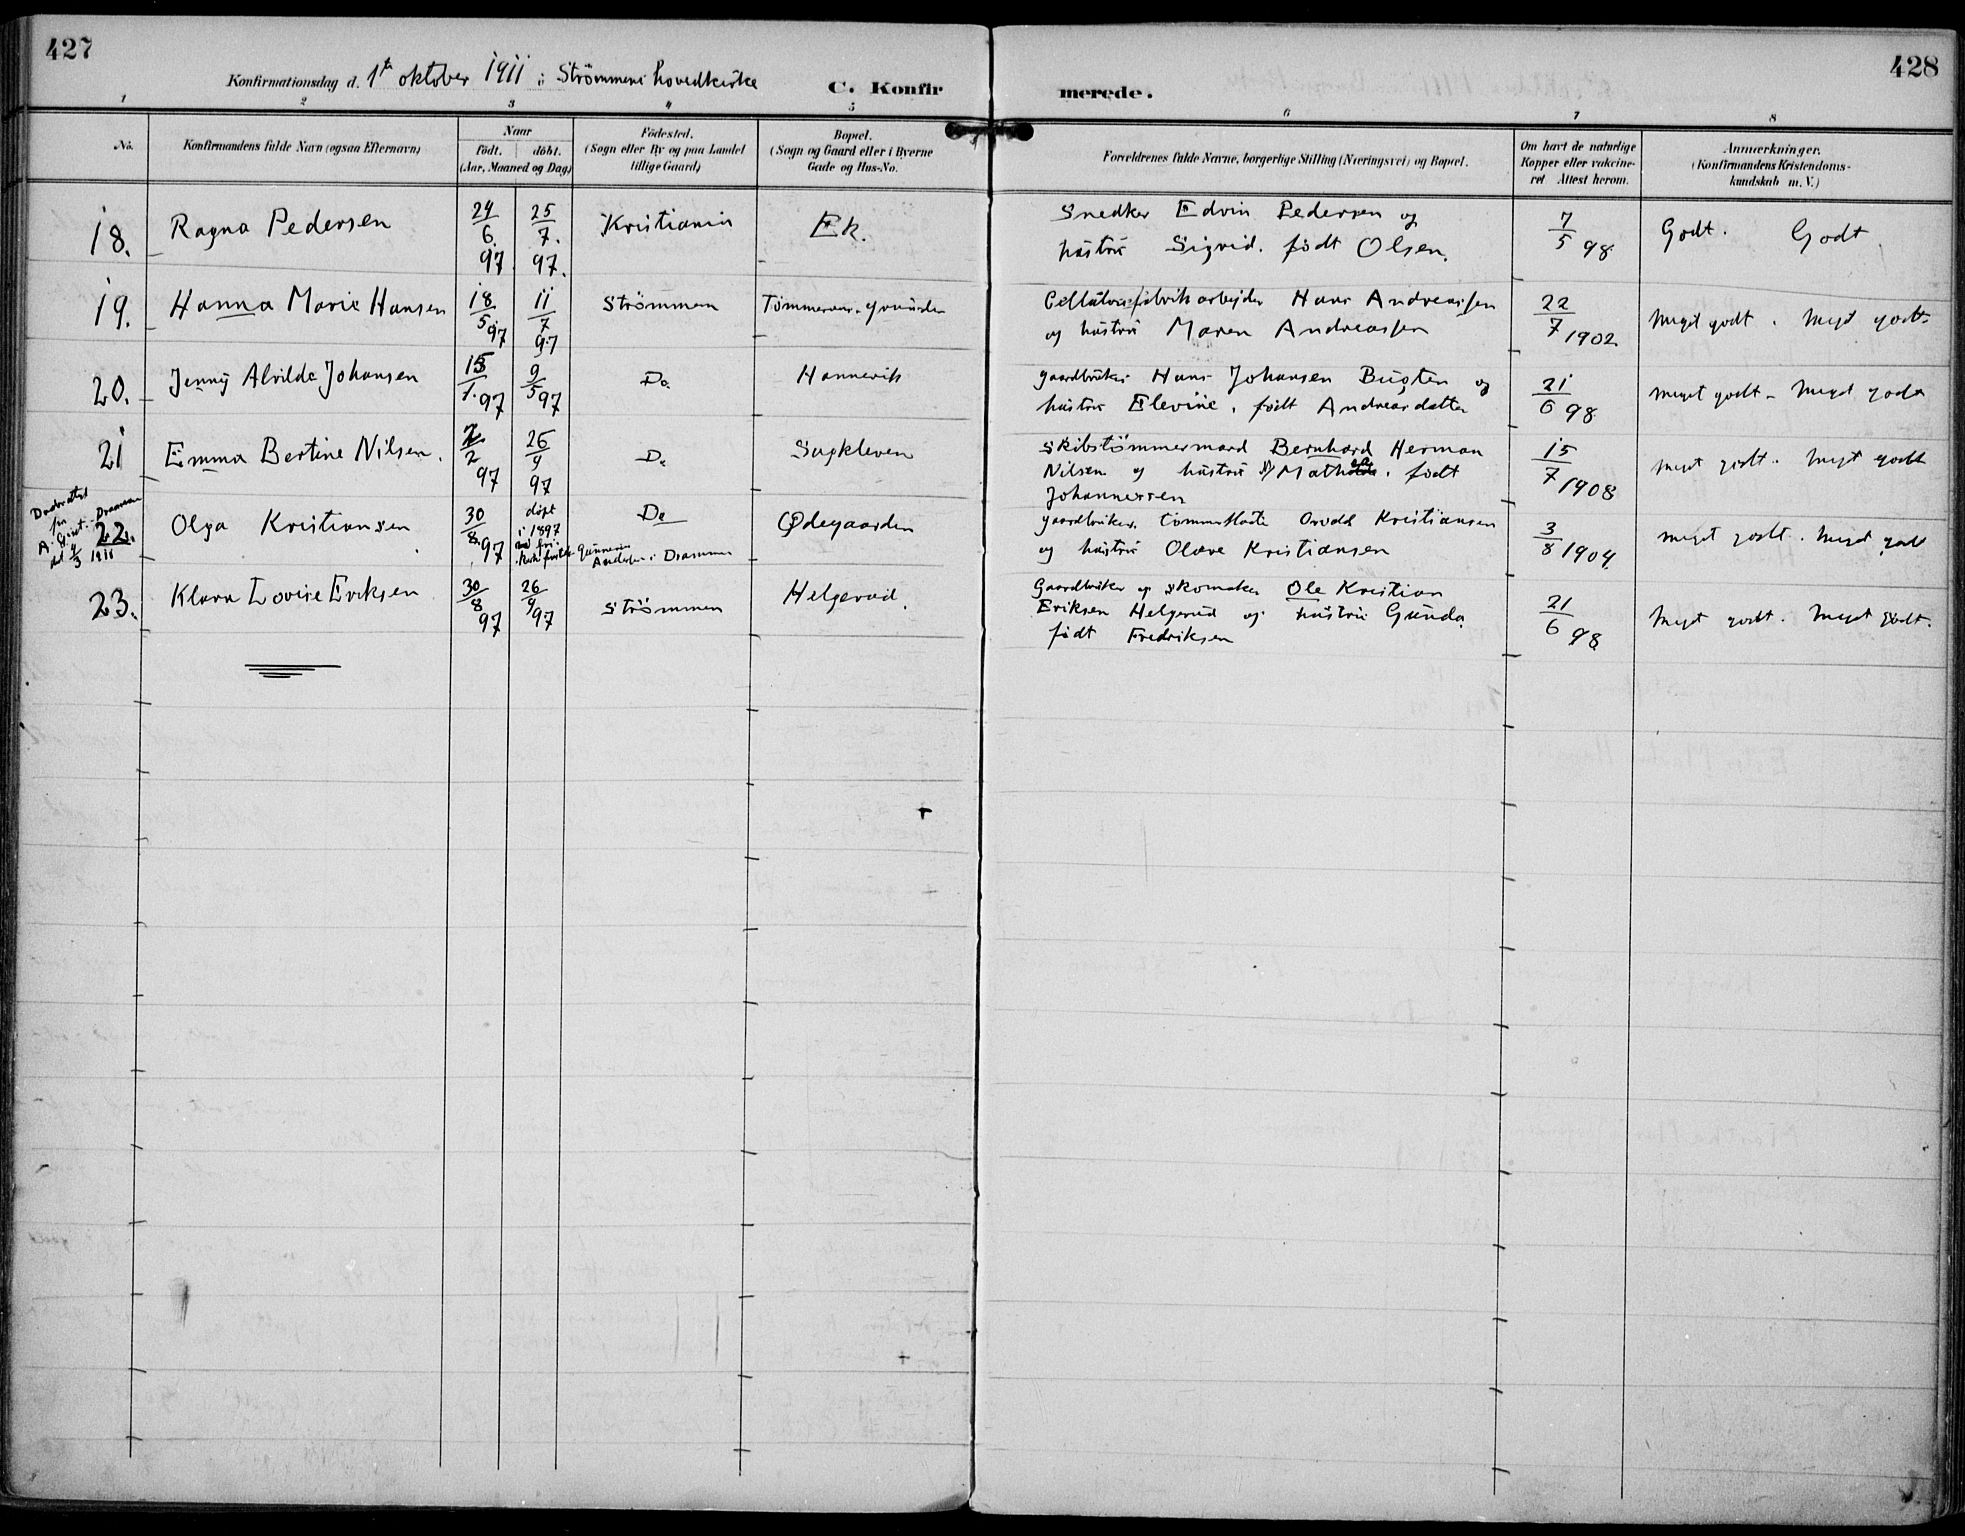 427
428
Konfirmationsdag d. 1te oktober 1911 i Strömmens hovedkirke
C. Konfirmerede.
1 2 3 4 5 6 7 8
No.
Konfirmandens fulde Navn (ogsaa Efternavn)
Naar
födt. döbt.
(Aar, Maaned og Dag)
Födested.
(Sogn eller By og paa Landet
tillige Gaard)
Bopæl.
(Sogn og Gaard eller i Byerne
Gade og Hus-No.
Forældrenes fulde Navne, borgerlige Stilling (Næringsvei) og Bopæl.
Om havt de naturlige
Kopper eller vakcine-
ret Attest herom.
Anmærkninger.
(Konfirmandens Kristendoms-
kundskab m. V.)
18. Ragna Pedersen 24/6 97 25/7 97. Kristiania Ek.
Snedker Edvin Pedersen og
hustru Sigrid. födt Olsen.
7/5 98 Godt. Godt
19. Hanna Marie Hansen 18/5 97 11/7 97 Strömmen
Cellulosefabrikarbeider Hans Andreassen
og hustru Maren Andreassen
22/7 1902 Meget godt. Meget godt
20. Jenny Alvilde Johansen 15/1 97 9/5 97 Do. Hannevik
gaardbruker Hans Johansen Bugten og
hustru Elevine, födt Andreasdatter
21/6 98 Meget godt - Meget godt
21 Emma Bertine Nilsen. 2/2 97 26/4 97 Do
Skibstömmermand Bernhard Herman
Nilsen og hustru födt
Johannessen
15/7 1908 Meget godt. Meget godt
22. Olga Kristiansen 30/8 97 döpt
i 1897
Drammen
Do Ødegaarden
gaardbruker, Kristiansen
og hustru Olave Kristiansen
3/8 1904 Meget godt. Meget godt
1911
23. Klara Lovise Eriksen 30/8 97 26/9 97 Strömmen Helgerud.
Gaardbruker og skomaker Ole Kristian
Eriksen Helgerud og hustru Gunda
födt Fredriksen
21/6 98 Meget godt. Meget godt.